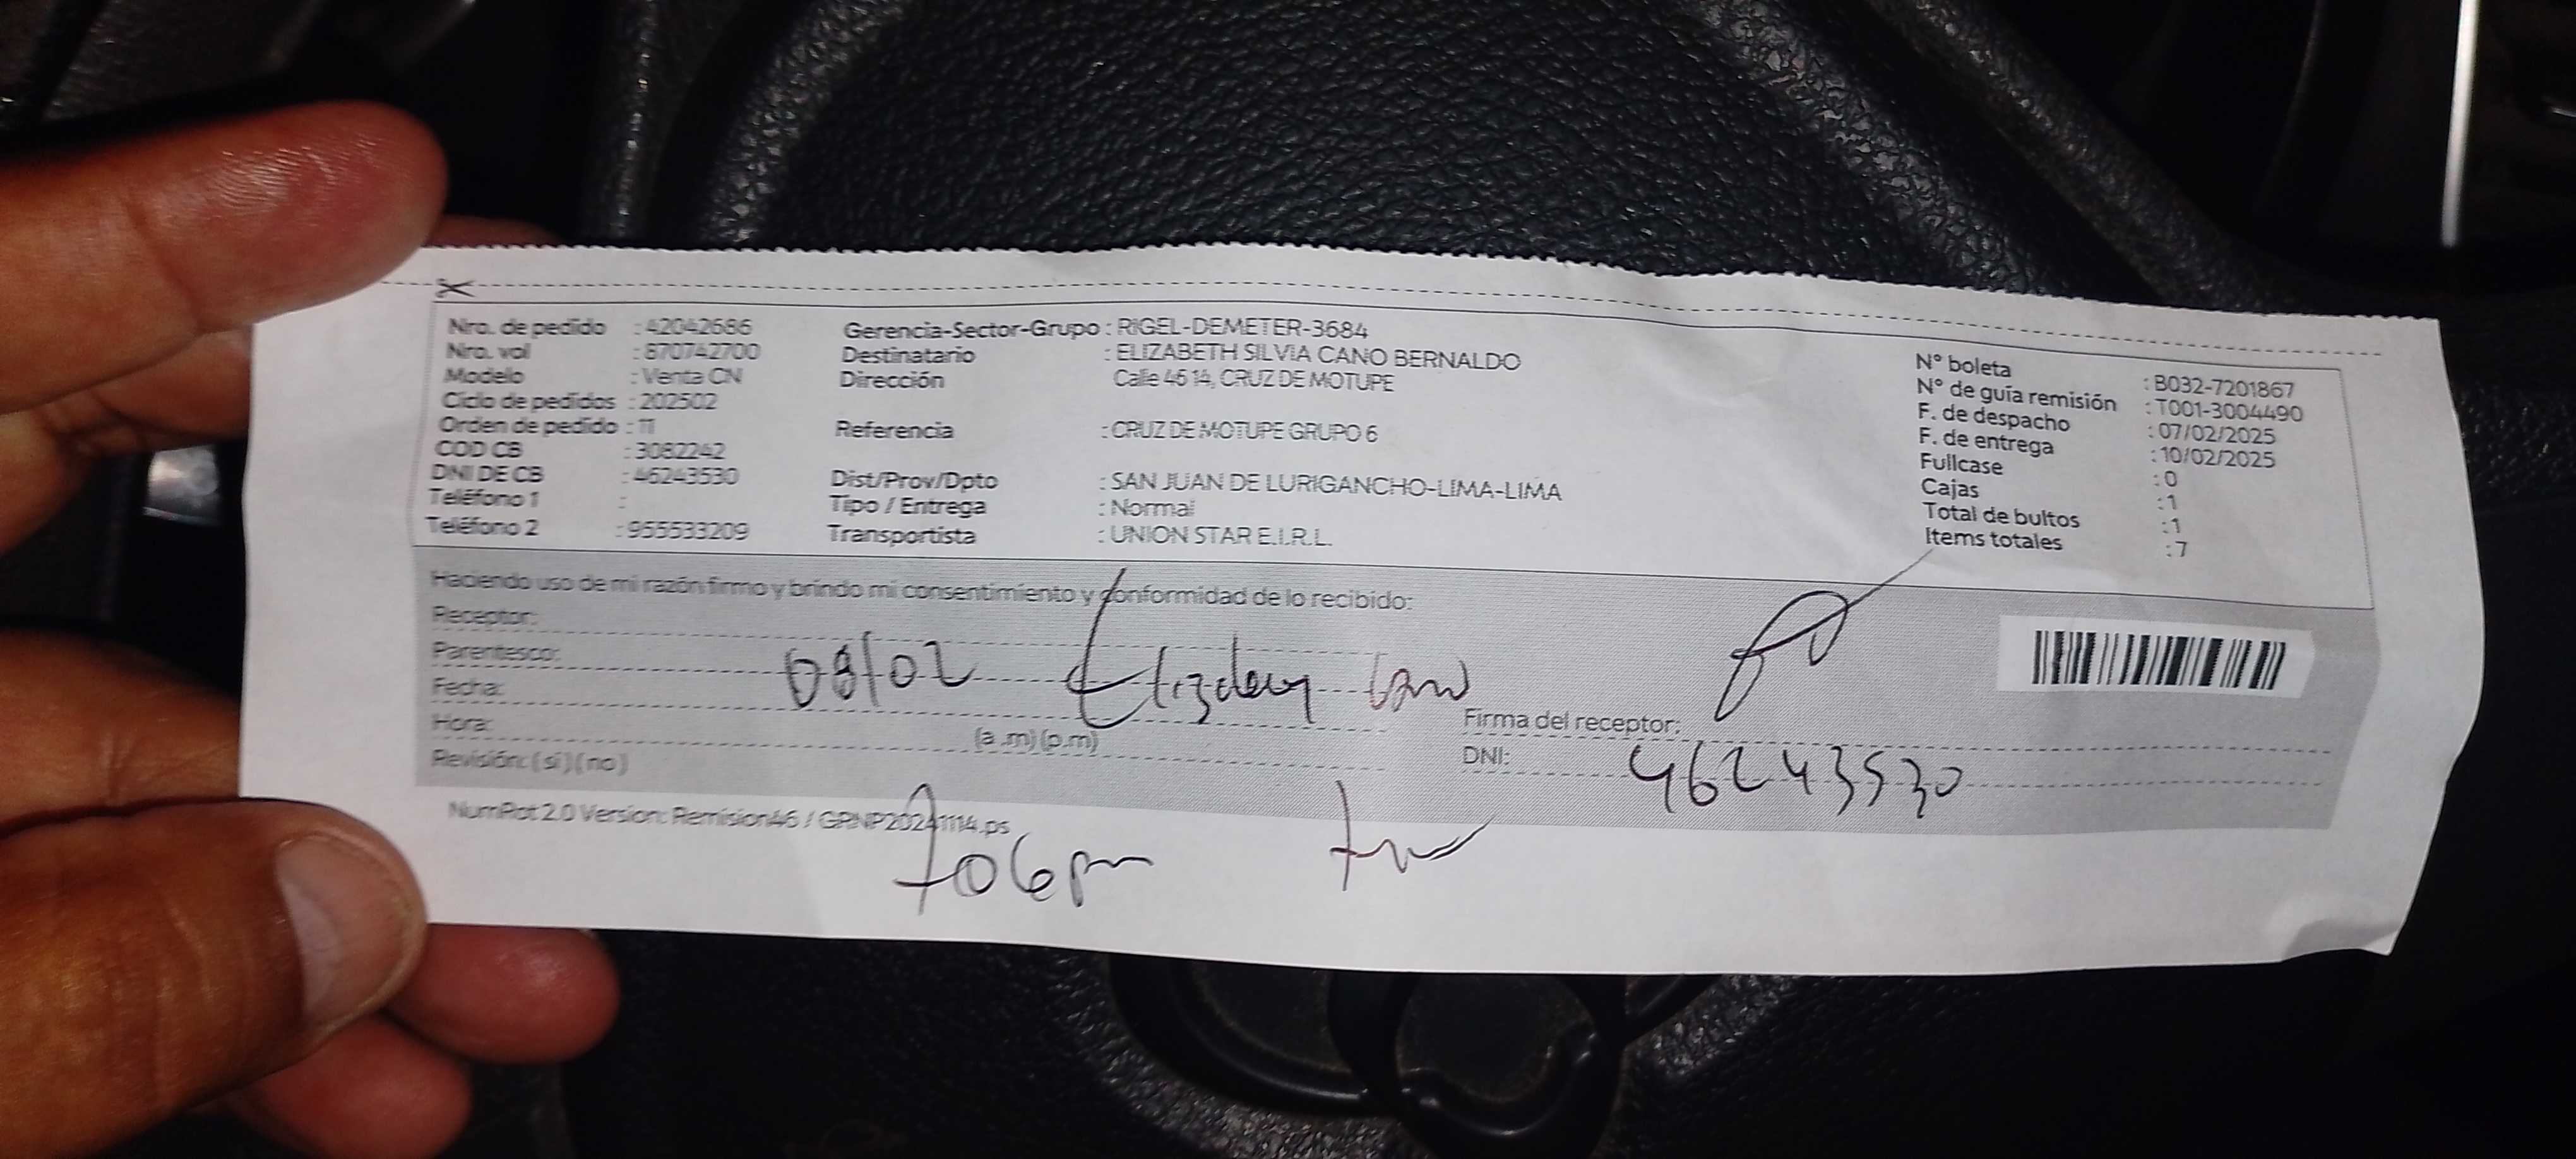 Nro. de pedido : 42042686
Nro. vol : 870742700
Modelo : Venta CN
Ciclo de pedidos : 202502
Orden de pedido : 11
COD CB : 3082242
DNI DE CB : 46243530
Teléfono 1 :
Teléfono 2 : 955533209
Gerencia-Sector-Grupo : RIGEL-DEMETER-3684
Destinatario : ELIZABETH SILVIA CANO BERNALDO
Dirección Calle 46 14, CRUZ DE MOTUPE
Referencia : CRUZ DE MOTUPE GRUPO 6
Dist/Prov/Dpto : SAN JUAN DE LURIGANCHO-LIMA-LIMA
Tipo / Entrega : Normal
Transportista : UNION STAR E.I.R.L.
N° boleta : B032-7201867
N° de guía remisión : T001-3004490
F. de despacho : 07/02/2025
F. de entrega : 10/02/2025
Fullcase : 0
Cajas : 1
Total de bultos : 1
Items totales : 7
Haciendo uso de mi razón firmo y brindo mi consentimiento y conformidad de lo recibido:
Receptor:
Parentesco:
08/02 Cano
Fecha:
Hora: (a .m) (p.m)
Revisión: ( si ) ( no )
Firma del receptor:
DNI: 46243530
NumRot 2.0 Version: Remision46 / GRNP20241114.ps
706pm